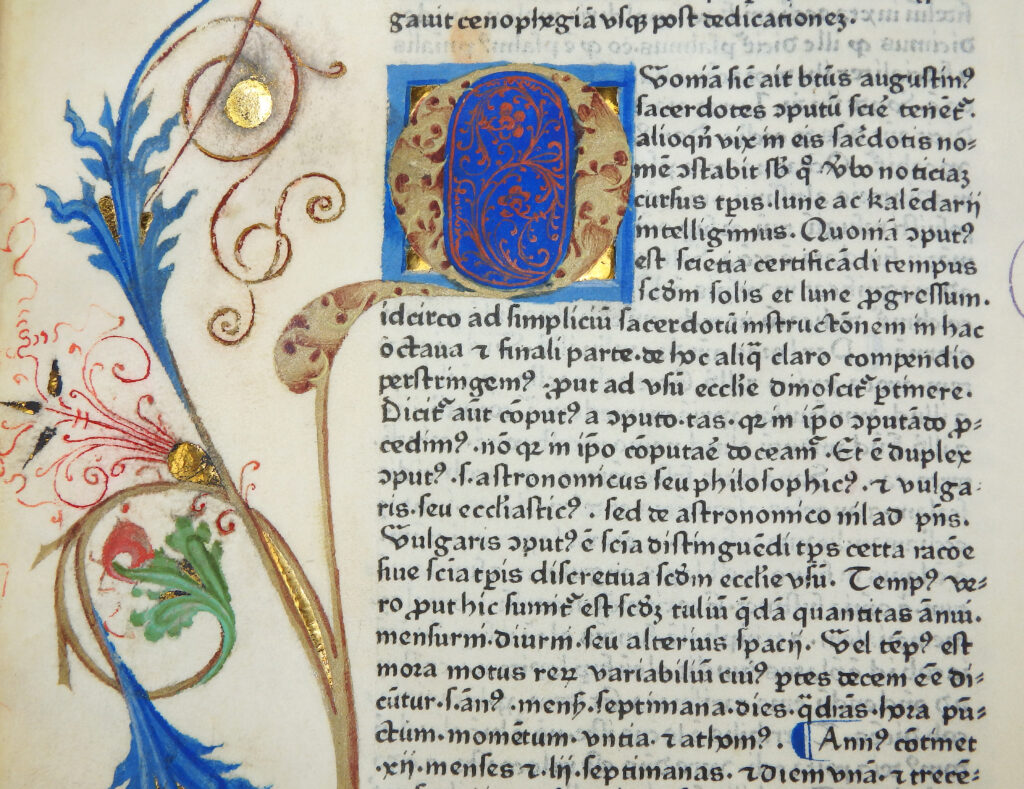 gauit cenophegiā vsqꝫ post dedicationeꝫ.
Quoniā sic̄ ait btūs augustinꝰ
sacerdotes ꝯputū scīe tenēt᷑.
alioqn̄ vix in eis sac̄dotis no-
mē ꝯstabit sb̄ qͦ vb̄o noticiaꝫ
cursus tp̄is. lune ac kalēdarii
intelligimus. Quoniā ꝯputꝰ
est sciētia certificādi tempus
scd̄m solis et lune ꝓgressum.
idcirco ad simpliciū sacerdotū instructōnem in hac
octaua ⁊ finali parte. de hoc aliq̄ claro compendio
perstringemꝰ. ꝓut ad vsū eccl̄ie dinoscit᷑ ꝑtinere.
Dicit᷑ aūt cōputꝰ a ꝯputo. tas. qr in ip̄o ꝯputādo ꝓ-
cedimꝰ. nō qr in ip̄o cōputaē doceam᷑. Et ē duplex
ꝯputꝰ. s. astronomicus seu philosophicꝰ. ⁊ vulga-
ris. seu eccl̄iasticꝰ. sed de astronomico nl̄ ad pn̄s.
Vulgaris ꝯputꝰ ē scīa distinguēdi tp̄s certa racōe
siue scīa tp̄is discretiua scd̄m eccl̄ie vsū. Tempꝰ ve-
ro ꝓut hic sumit᷑ est scd̄ꝫ tuliū q̄dā quantitas ānui.
mensurni. diurni. seu alterius spacii. Vel tēpꝰ est
mora motus reꝝ variabiliū cuiꝰ ꝑtes decem eē di-
cūtur. s. anꝰ. mens̄. septimana. dies. q̄drās. hora pū-
ctum. momētum. vntia. ⁊ athomꝰ. Annꝰ cōtinet
.xii. menses ⁊ lii. septimanas. ⁊ diem vnā. ⁊ trecē-